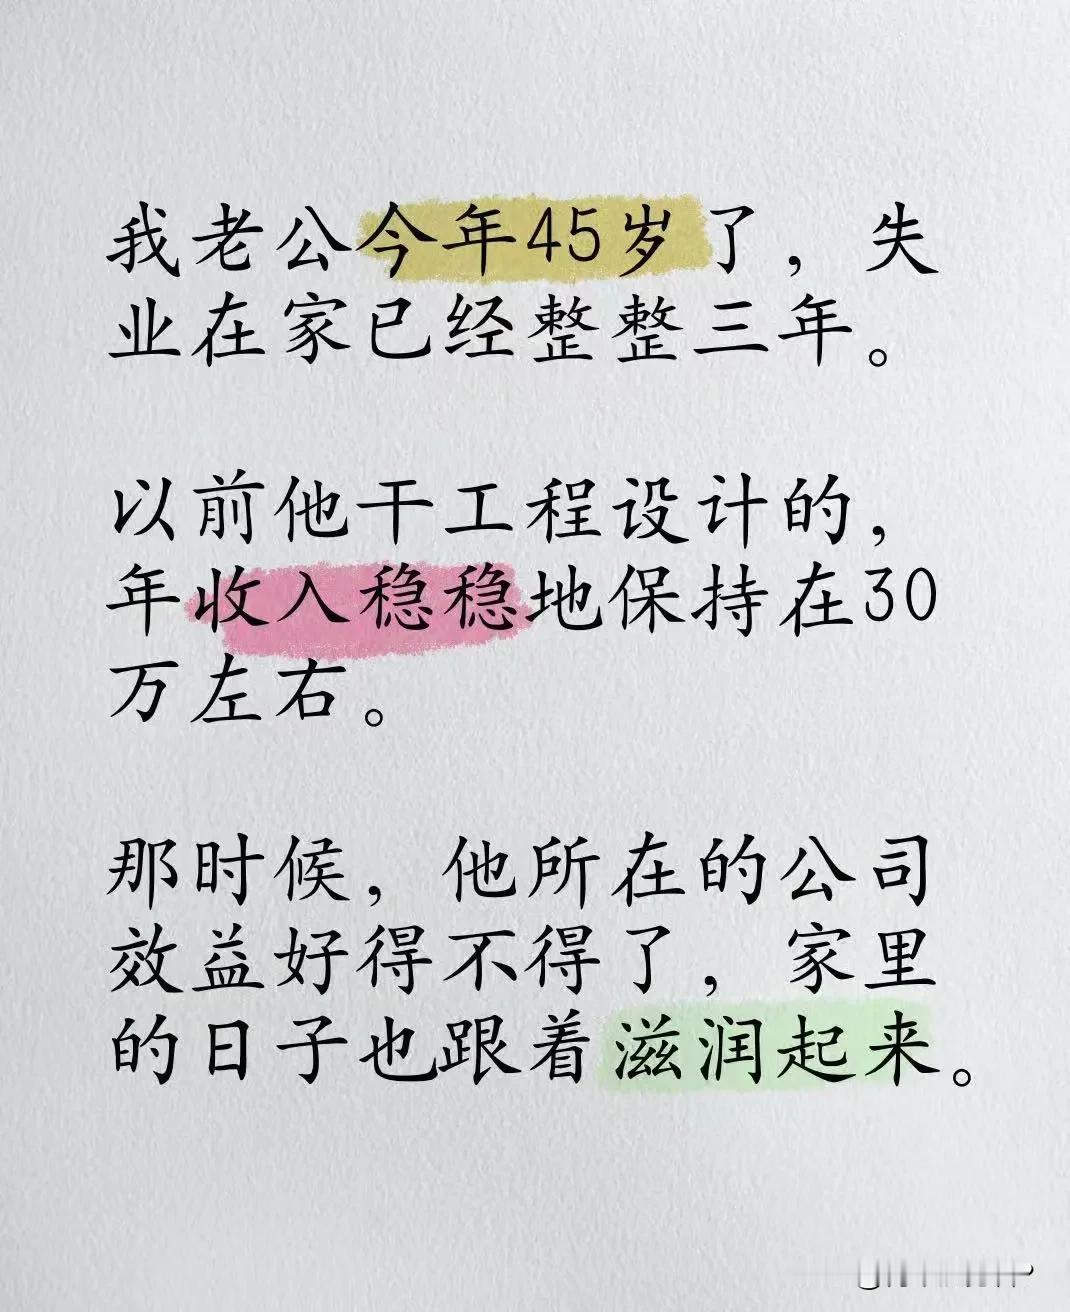 我老公今年45岁了，失
业在家已经整整三年。
以前他干工程设计的，
年收入稳稳地保持在30
万左右。
那时候，他所在的公司
效益好得不得了，家里
的日子也跟着滋润起来。